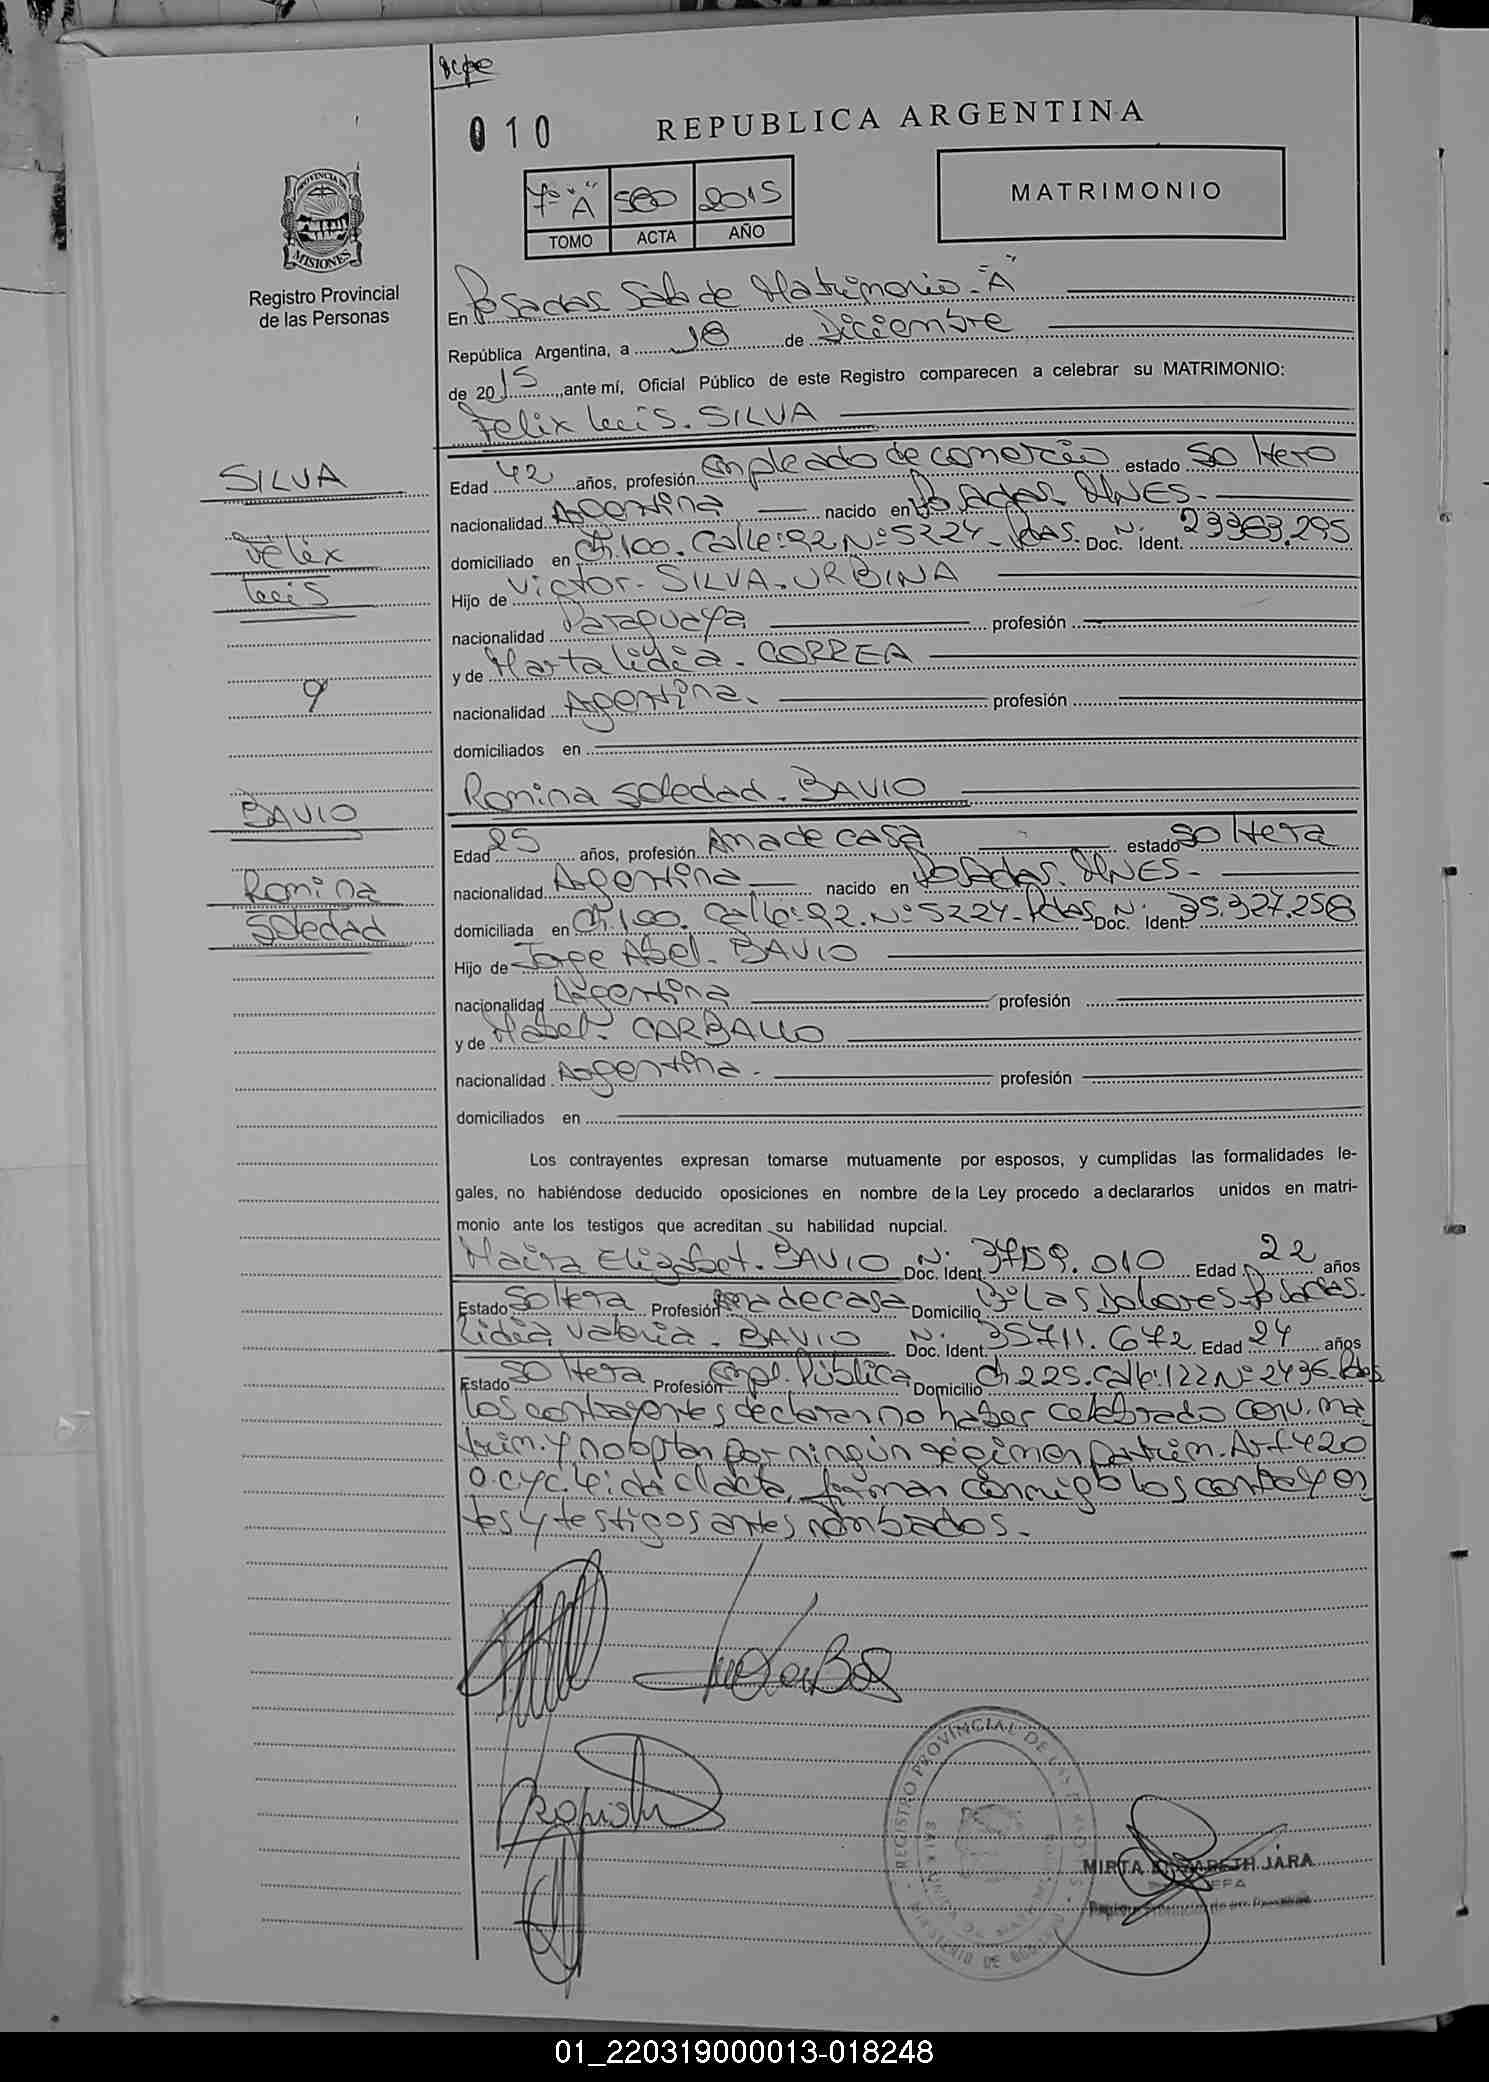 010
REPUBLICA ARGENTINA
PROVINCIA DE
MISIONES
Registro Provincial
de las Personas
7º "A" 580 2015
TOMO ACTA AÑO
MATRIMONIO
En Posadas Sala de Matrimonio "A"
República Argentina, a 18 de Diciembre
de 2015, ante mí, Oficial Público de este Registro comparecen a celebrar su MATRIMONIO:
Felix Luis. SILVA
SILVA
Félix
Luis
Edad 42 años, profesión Empleado de comercio estado soltero
nacionalidad Argentina nacido en Posadas. MNES.
domiciliado en Ch.100. Calle:92 Nº 5224-Pdas. Doc. Ident. N: 23383.295
Hijo de Victor. SILVA. URBINA
nacionalidad Paraguaya profesión
y de Marta lidia. CORREA
nacionalidad Argentina. profesión
domiciliados en
Romina Soledad. BAVIO
BAVIO
Romina
Soledad
Edad 25 años, profesión Ama de casa estado soltera
nacionalidad Argentina nacido en Posadas. MNES.
domiciliada en Ch.100. Calle:92. Nº 5224-Pdas Doc. Ident. N: 35.327.258
Hijo de Jorge Abel. BAVIO
nacionalidad Argentina profesión
y de Mabel. CARBALLO
nacionalidad Argentina. profesión
domiciliados en
Los contrayentes expresan tomarse mutuamente por esposos, y cumplidas las formalidades le-
gales, no habiéndose deducido oposiciones en nombre de la Ley procedo a declararlos unidos en matri-
monio ante los testigos que acreditan su habilidad nupcial.
Maira Elizabet. BAVIO Doc. Ident. N: 37159.010 Edad 22 años
Estado Soltera Profesión Ama de casa Domicilio Bº Las Dolores-Posadas.
Lidia Valeria. BAVIO Doc. Ident. N: 35711.672 Edad 24 años
Estado Soltera Profesión Empl. Pública Domicilio Ch 225. Calle:122 Nº 2436-Pdas
los contrayentes declaran no haber celebrado conv. ma
trim. y no optan por ningún régimen patrim. Art 420
leida el acta, firman conmigo los contrayen
tes y testigos antes nombrados.
REGISTRO PROVINCIAL DE LAS PERSONAS
MINISTERIO DE GOBIERNO
MIRTA ELIZABETH JARA
JEFA
01_220319000013-018248